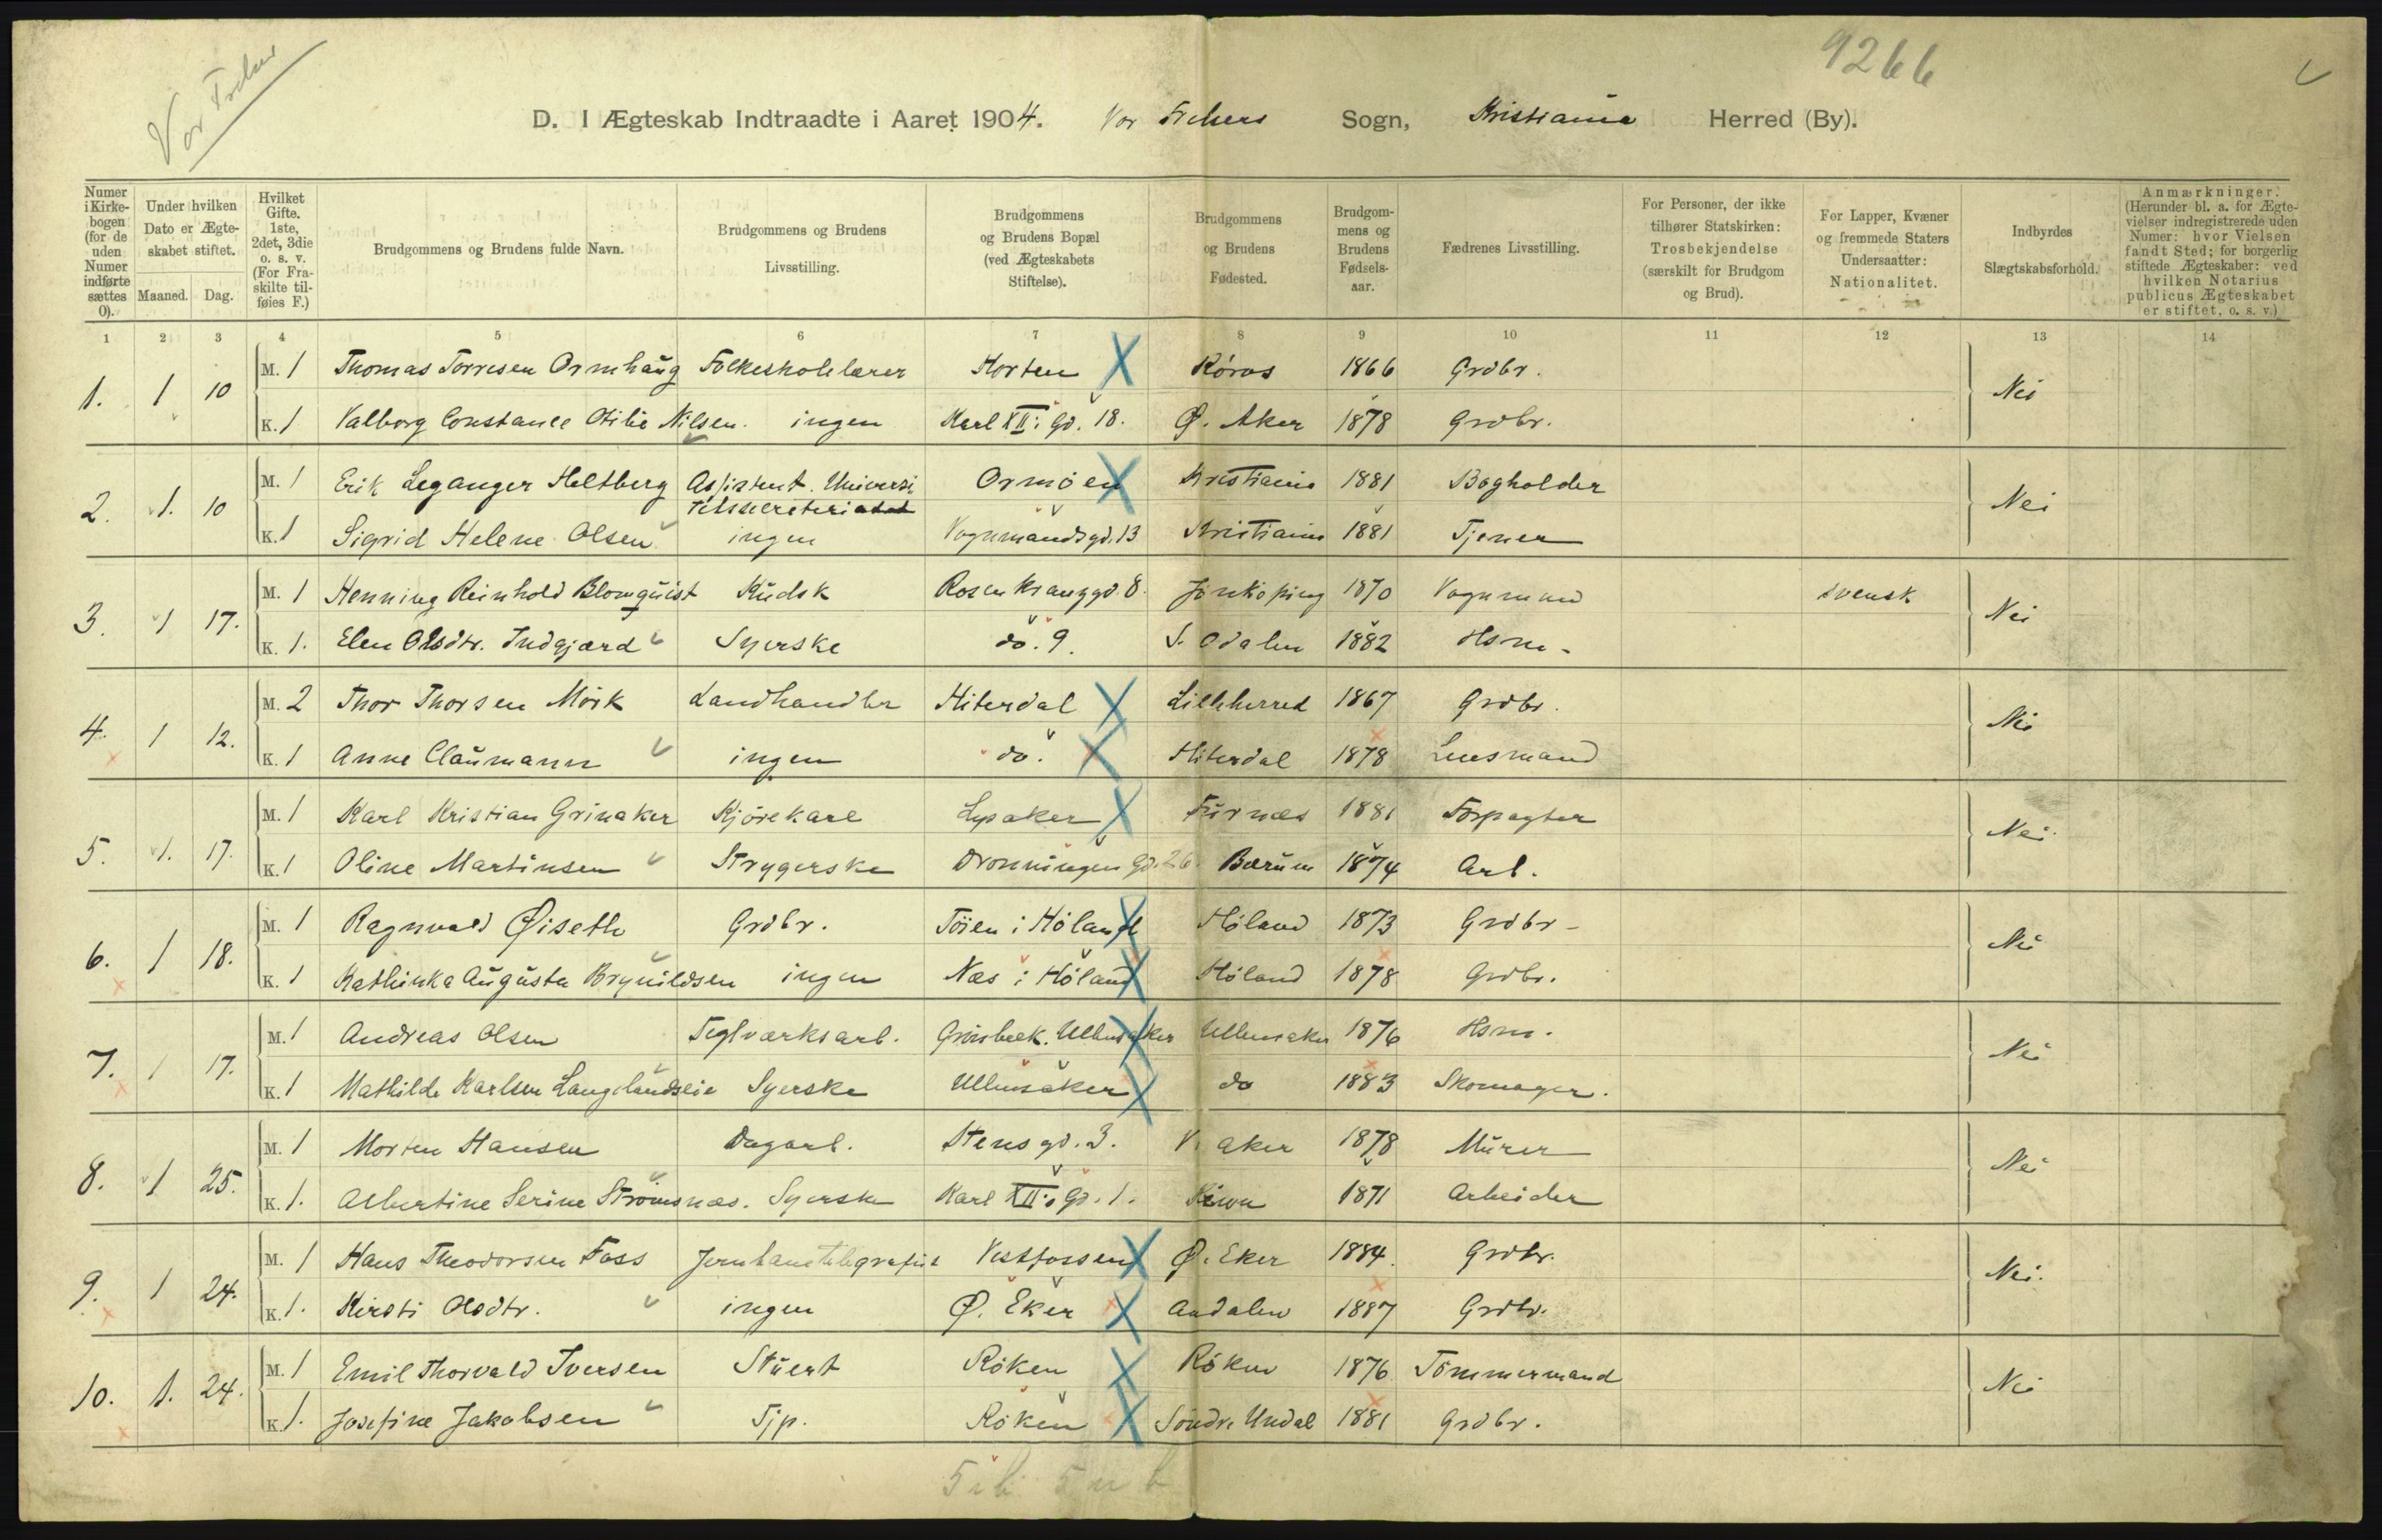 Vor Frelser
9266
D. I Ægteskab Indtraadte i Aaret 1904. Vor Frelsers Sogn, Kristiania Herred (By).
Numer i Kirkebogen (for de uden Numer indførte sættes 0).
Under hvilken Dato er Ægteskabet stiftet.
Maaned. Dag.
Hvilket Gifte. 1ste, 2det, 3die o. s. v. (For Fraskilte tilføies F.)
Brudgommens og Brudens fulde Navn.
Brudgommens og Brudens Livsstilling.
Brudgommens og Brudens Bopæl (ved Ægteskabets Stiftelse).
Brudgommens og Brudens Fødested.
Brudgommens og Brudens Fødselsaar.
Fædrenes Livsstilling.
For Personer, der ikke tilhører Statskirken: Trosbekjendelse (særskilt for Brudgom og Brud).
For Lapper, Kvæner og fremmede Staters Undersaatter: Nationalitet.
Indbyrdes Slægtskabsforhold.
Anmærkninger. (Herunder bl. a. for Ægtevielser indregistrerede uden Numer: hvor Vielsen fandt Sted; for borgerlig stiftede Ægteskaber: ved hvilken Notarius publicus Ægteskabet er stiftet, o. s. v.)
1 2 3 4 5 6 7 8 9 10 11 12 13 14
1. 1 10 M. 1 Thomas Torresen Ormhaug Folkeskolelærer Horten Röros 1866 Grdbr. Nei
K. 1 Valborg Constance Otilie Nilsen. ingen Karl XII: Gd. 18. Ø. Aker 1878 Grdbr.
2. 1. 10 M. 1 Erik Leganger Heltberg Assistent. Universi Ormöen Kristiania 1881 Bogholder Nei
tetssecreteriatet
K. 1 Sigrid Helene Olsen ingen Vognmandsgd. 13 Kristiania 1881 Tjener
3. 1 17. M. 1 Henning Reinhold Blomquist Kudsk Rosenkranzgd. 8. Jönköping 1870 Vognmand svensk Nei
K. 1. Elen Olsdtr. Indgjærd Syerske do. 9. S. Odalen 1882 Hsm.
4. 1 12. M. 2 Thor Thorsen Mörk Landhandler Hiterdal Lilleherred 1867 Grdbr. Nei
K. 1 Anne Claumann ingen do. Hiterdal 1878 Lensmand
5. 1. 17. M. 1 Karl Kristian Grinaker Kjörekarl Lysaker Furnæs 1881 Forpagter Nei
K. 1 Oline Martinsen Strygerske Dronningens Gd. 26. Bærum 1874 Arb.
6. 1 18. M. 1 Ragnvald Øiseth Grdbr. Töien i Höland Höland 1873 Grdbr. Nei
K. 1 Kathinka Augusta Brynildsen ingen Næs i Höland Höland 1878 Grdbr.
7. 1 17. M. 1 Andreas Olsen Teglværksarb. Ullensaker Ullensaker 1876 Hsm. Nei
K. 1 Mathilde Karlsen Langelandseie Syerske Ullensaker do 1883 Skomager.
8. 1 25. M. 1 Morten Hansen Dagarb. Stensgd. 3. V. Aker 1878 Murer Nei
K. 1. Albertine Serine Strömsnæs. Syerske Karl XII: Gd. 1. 1871 Arbeider
9. 1 24. M. 1 Hans Theodorsen Foss Jernbanetelegrafist Vestfossen Ø. Eker 1884. Grdbr. Nei.
K. 1. Kirsti Olsdtr. ingen Ø. Eker Aadalen 1887 Grdbr.
10. 1. 24. M. 1 Emil Thorvald Iversen Stuert Röken Röken 1876 Tömmermand Nei
K. 1. Josefine Jakobsen Tjp. Röken Söndre Undal 1881 Grdbr.